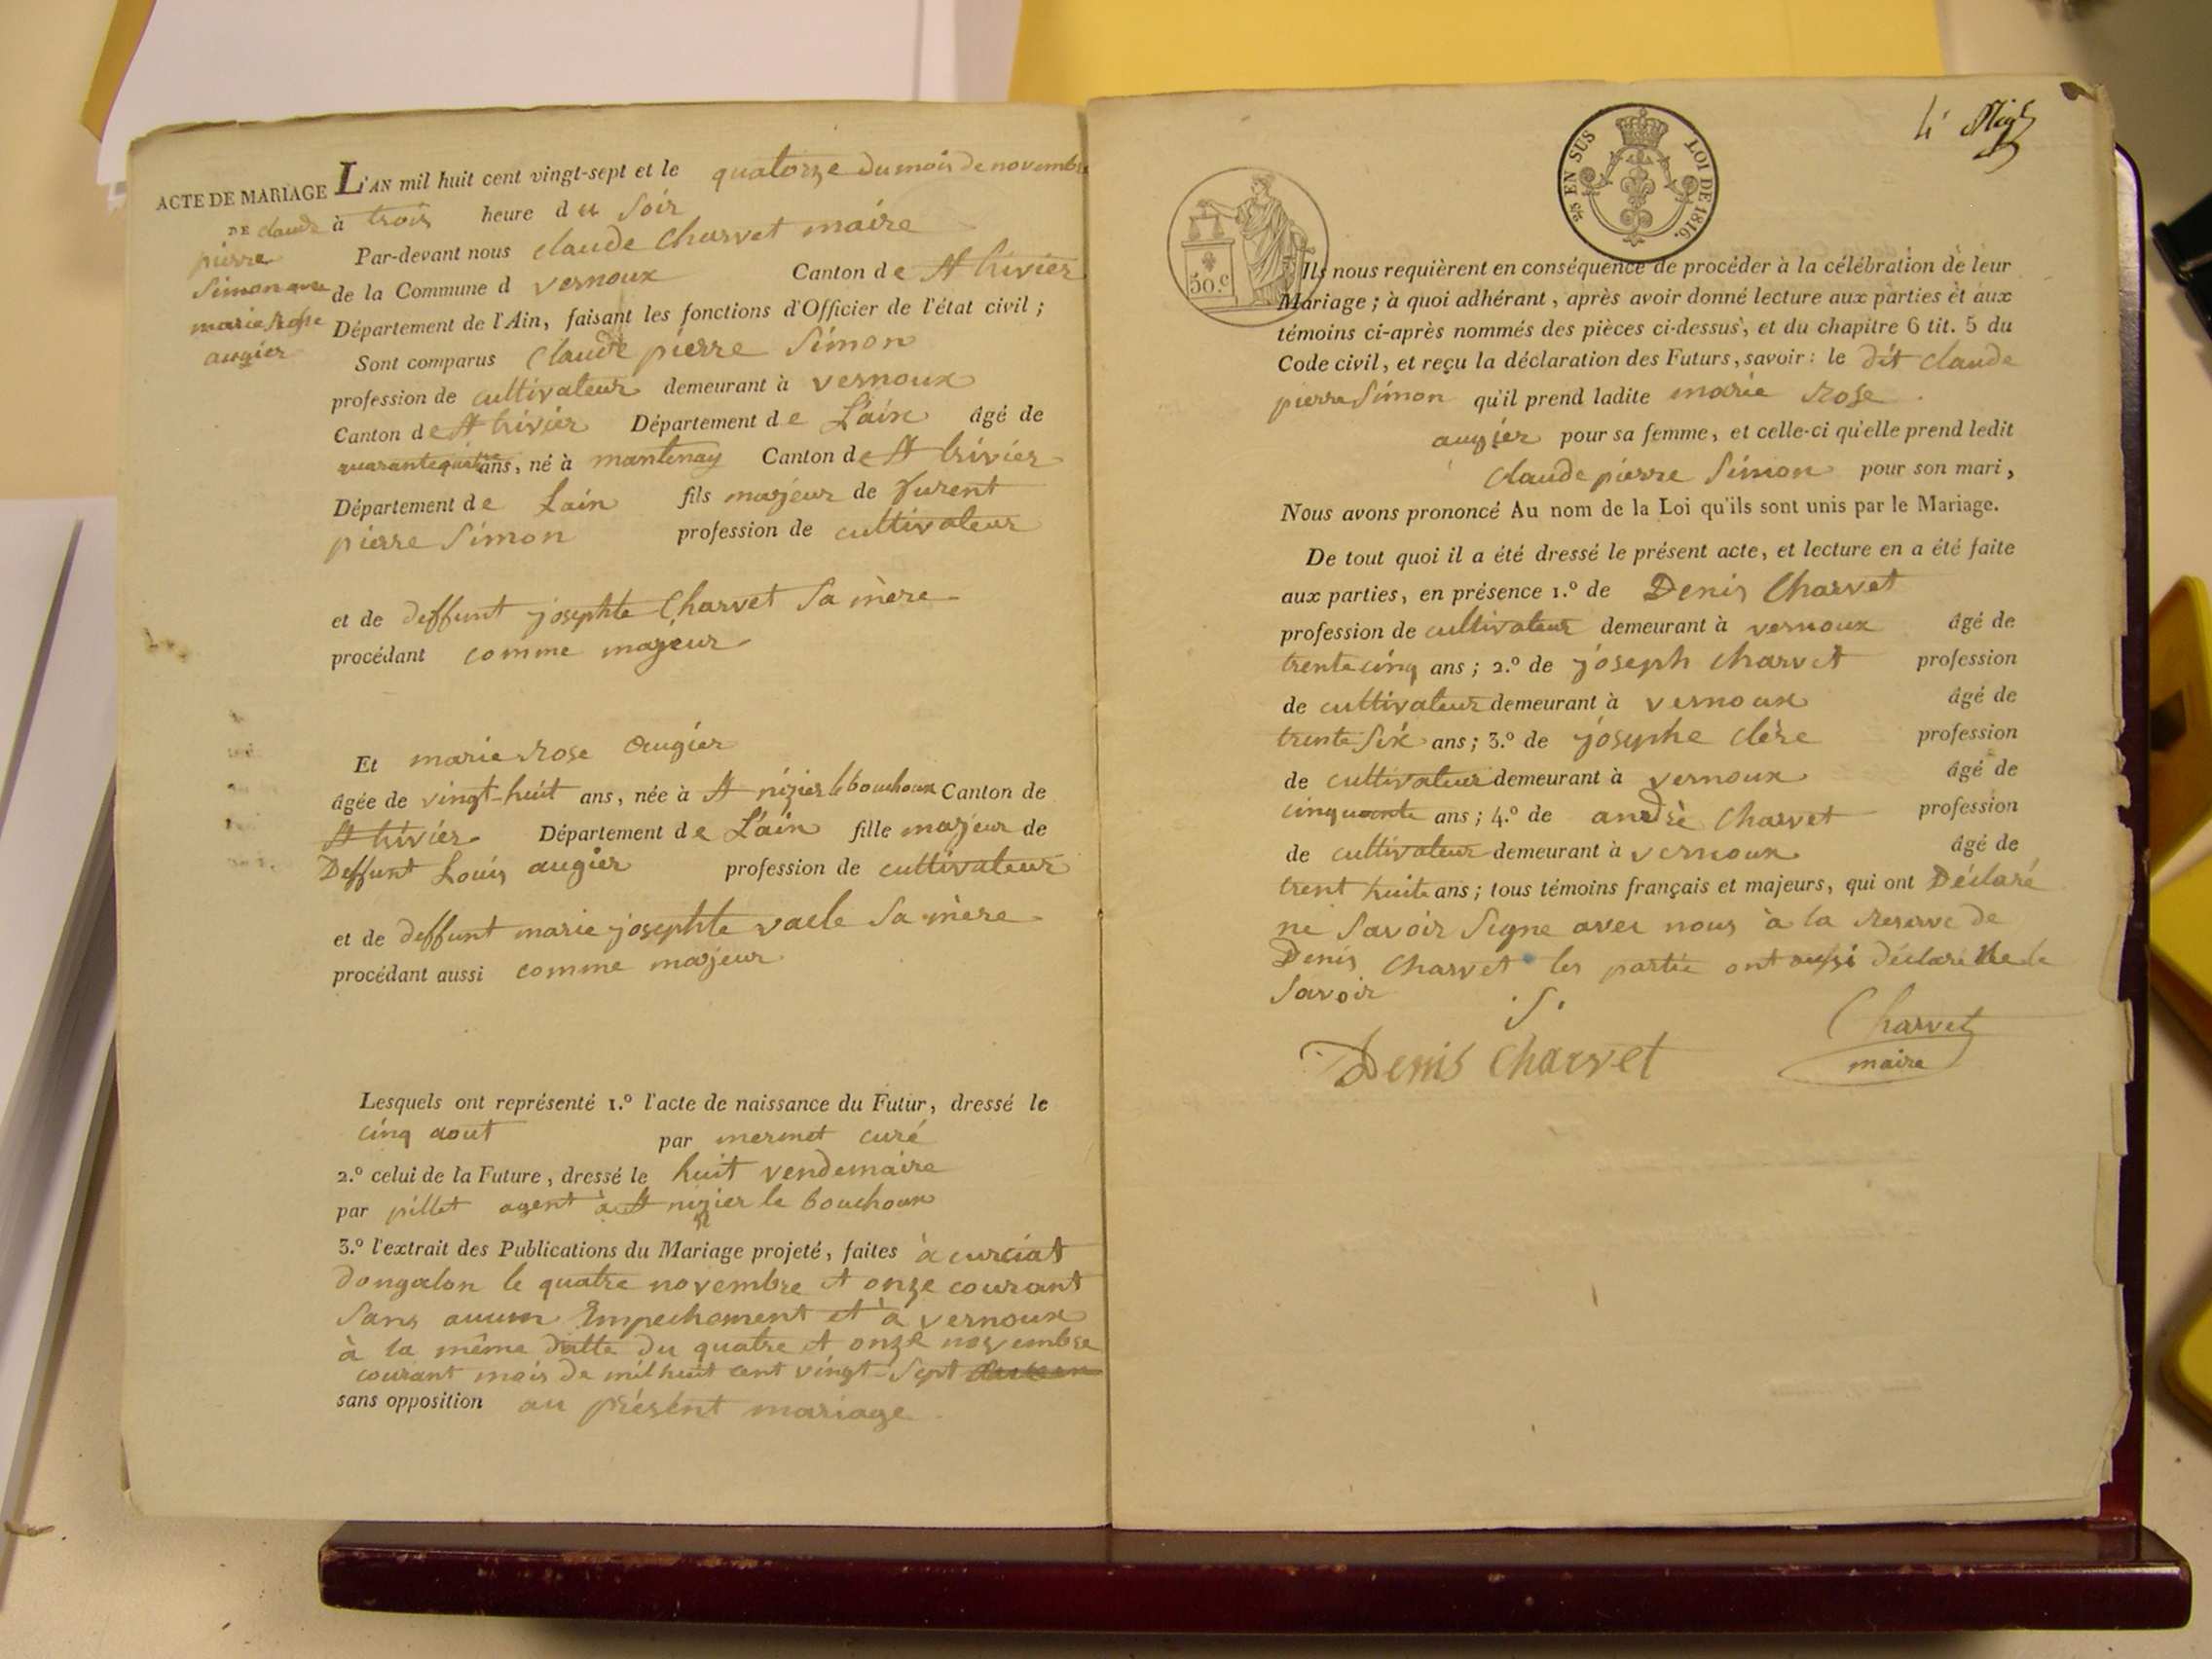 ACTE DE MARIAGE
DE claude
pierre
Simon avec
marie Rose
augier
L'AN mil huit cent vingt-sept et le quatorze du mois de novembre
à trois heure du Soir
Par-devant nous claude Charvet maire
de la Commune d vernoux Canton de St trivier
Département de l'Ain, faisant les fonctions d'Officier de l'état civil ;
Sont comparus Claude pierre Simon
profession de cultivateur demeurant à vernoux
Canton de St trivier Département de L'ain âgé de
quarante quatre ans, né à mantenay Canton de St trivier
Département de Lain fils majeur de
pierre Simon profession de cultivateur
et de deffunt josephte Charvet Sa mère
procédant comme majeur
Et marie Rose augier
âgée de vingt-huit ans, née à St nizier le bouchoux Canton de
St trivier Département de L'ain fille majeur de
Deffunt Louis augier profession de cultivateur
et de deffunt marie josephte vacle Sa mère
procédant aussi comme majeur
Lesquels ont représenté 1.º l'acte de naissance du Futur, dressé le
cinq aout par mermet curé
2.º celui de la Future, dressé le huit vendemaire
par pillet agent à St nizier le bouchoux
3.º l'extrait des Publications du Mariage projeté, faites à curciat
dongalon le quatre novembre et onze courant
Sans aucun Empechement et à vernoux
à la même datte du quatre et onze novembre
courant mois de mil huit cent vingt-Sept
sans opposition au présent mariage
50.c
25 EN SUS LOI DE 1816.
Ils nous requièrent en conséquence de procéder à la célébration de leur
Mariage ; à quoi adhérant, après avoir donné lecture aux parties et aux
témoins ci-après nommés des pièces ci-dessus, et du chapitre 6 tit. 5 du
Code civil, et reçu la déclaration des Futurs, savoir : le dit claude
pierre Simon qu'il prend ladite marie Rose
augier pour sa femme, et celle-ci qu'elle prend ledit
Claude pierre Simon pour son mari,
Nous avons prononcé Au nom de la Loi qu'ils sont unis par le Mariage.
De tout quoi il a été dressé le présent acte, et lecture en a été faite
aux parties, en présence 1.º de Denis Charvet
profession de cultivateur demeurant à vernoux âgé de
trente cinq ans ; 2.º de joseph charvet profession
de cultivateur demeurant à vernoux âgé de
trente Six ans ; 3.º de josephe clère profession
de cultivateur demeurant à vernoux âgé de
cinquante ans ; 4.º de andrè Charvet profession
de cultivateur demeurant à vernoux âgé de
trent huite ans ; tous témoins français et majeurs, qui ont Déclaré
ne Savoir Signe avec nous à la Reserve de
Denis Charvet les partie ont aussi déclaré ne le
Savoir
Denis Charvet
Charvet
maire